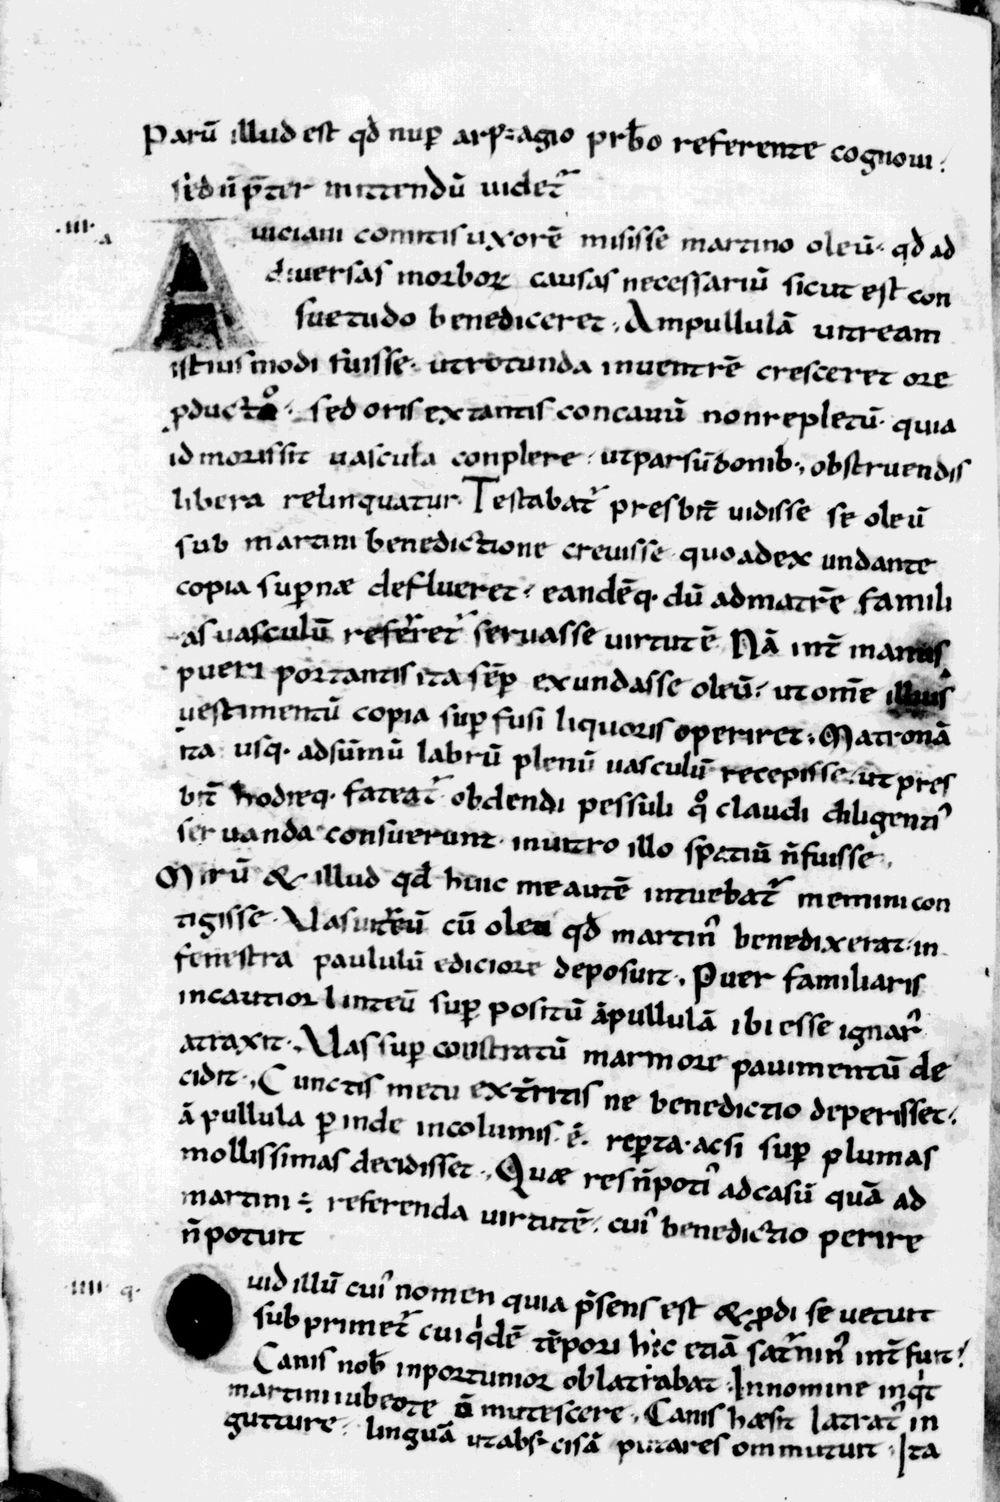 Parū illud est qđ nuꝑ arpagio prb̄o referente cognoui.
sed n̄ p̄termittendū uidet̃
.III.
Auiciani comitis uxorē misisse martino oleū. qđ ad
diuersas morboꝝ causas necessariū sicut est con
suetudo benediceret. Ampullulā uitream
istius modi fuisse. ut rotunda inuentrē cresceret ore
ꝓducto. sed oris extantis concauū non repletū. quia
id moris sit uascula conplere. ut pars ūbonib; obstruendis
libera relinquatur. Testabat̃ presbit̄ uidisse se oleū
sub martini benedictione creuisse quoadex undante
copia suꝑnæ deflueret. eandēq. dū ad matrē famili
as uasculū referret̃ seruasse uirtutē Nā int̄ manus
pueri portantis ita sēꝑ exundasse oleū. ut om̄e illius
uestimentū copia suꝑfusi liquoris operiret. Matronā
ita usq. adsūmū labrū plenū uasculū recepisse. ut pres
bit̄ hodieq. fateat̃ obdendi pessuli qͦ claudi diligenti᾽
seruanda consuerunt. inuitro illo spatiū n̄ fuisse.
Mirū & illud qđ huic meautē intuebat̃ memini con
tigisse. Vas uitreū cū oleo qđ martin᾽ benedixerat. in
fenestra paululū ediciore deposuit. Puer familiaris
incautior linteū suꝑ positū āpullulā ibi esse ignar᾽
atraxit. Vas suꝑ constratū marmore pauimentū de
cidit. Cunctis metu ext̄ritis ne benedictio deperisset.
ā pullula ꝑinde incolumis. ē. reꝑta. acsi suꝑ plumas
mollissimas decidisset. Quæ res n̄ poti᾽ adcasū quā ad
martini ÷ referenda uirtutē. cui᾽ benedictio perire
n̄ potuit
.IIII.
Quid illū cui᾽ nomen quia p̄sens est & ꝓdi se uetuit
subprimet̃ cuiqͥdē tēpori hic etiā saturnin᾽ int̄ fuit.
Canis nob̄ inportunior oblatrabat. Innomine inqͥt
martini iubeo te om̄utescere. Canis hæsit latrat᾽ in
gutture. linguā ut abscisā putares ommutuit. Ita